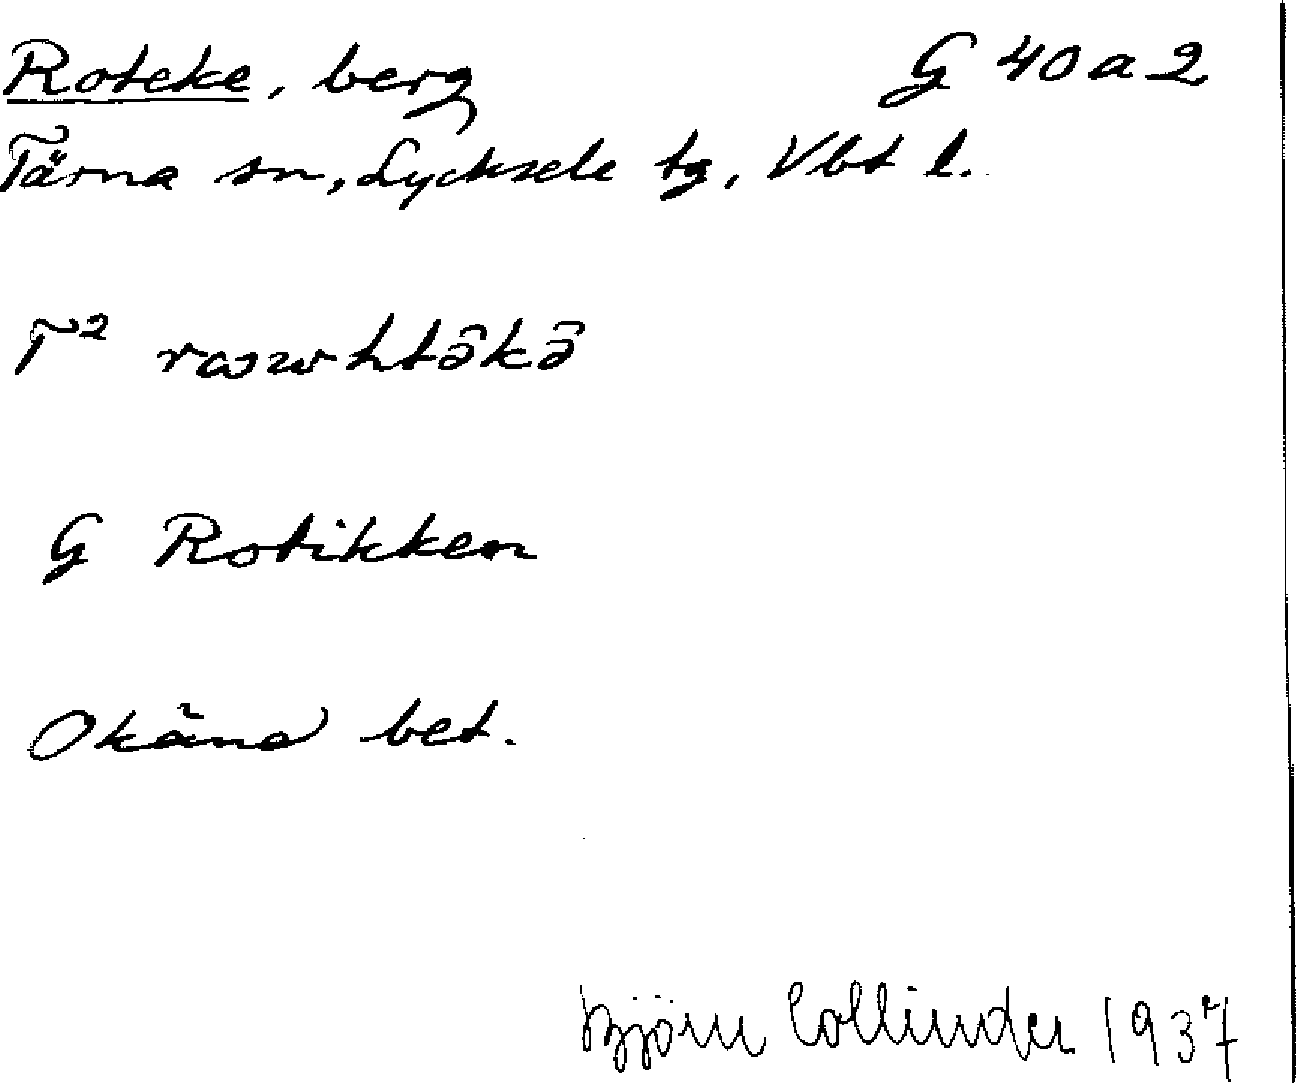 Roteke, berg G 40 a 2
Tärna sn, Lycksele tg, Vbt l.
T² rɷwhtə̑kə̑
G Rotikken
Okänd bet.
Björn Collinder 1937